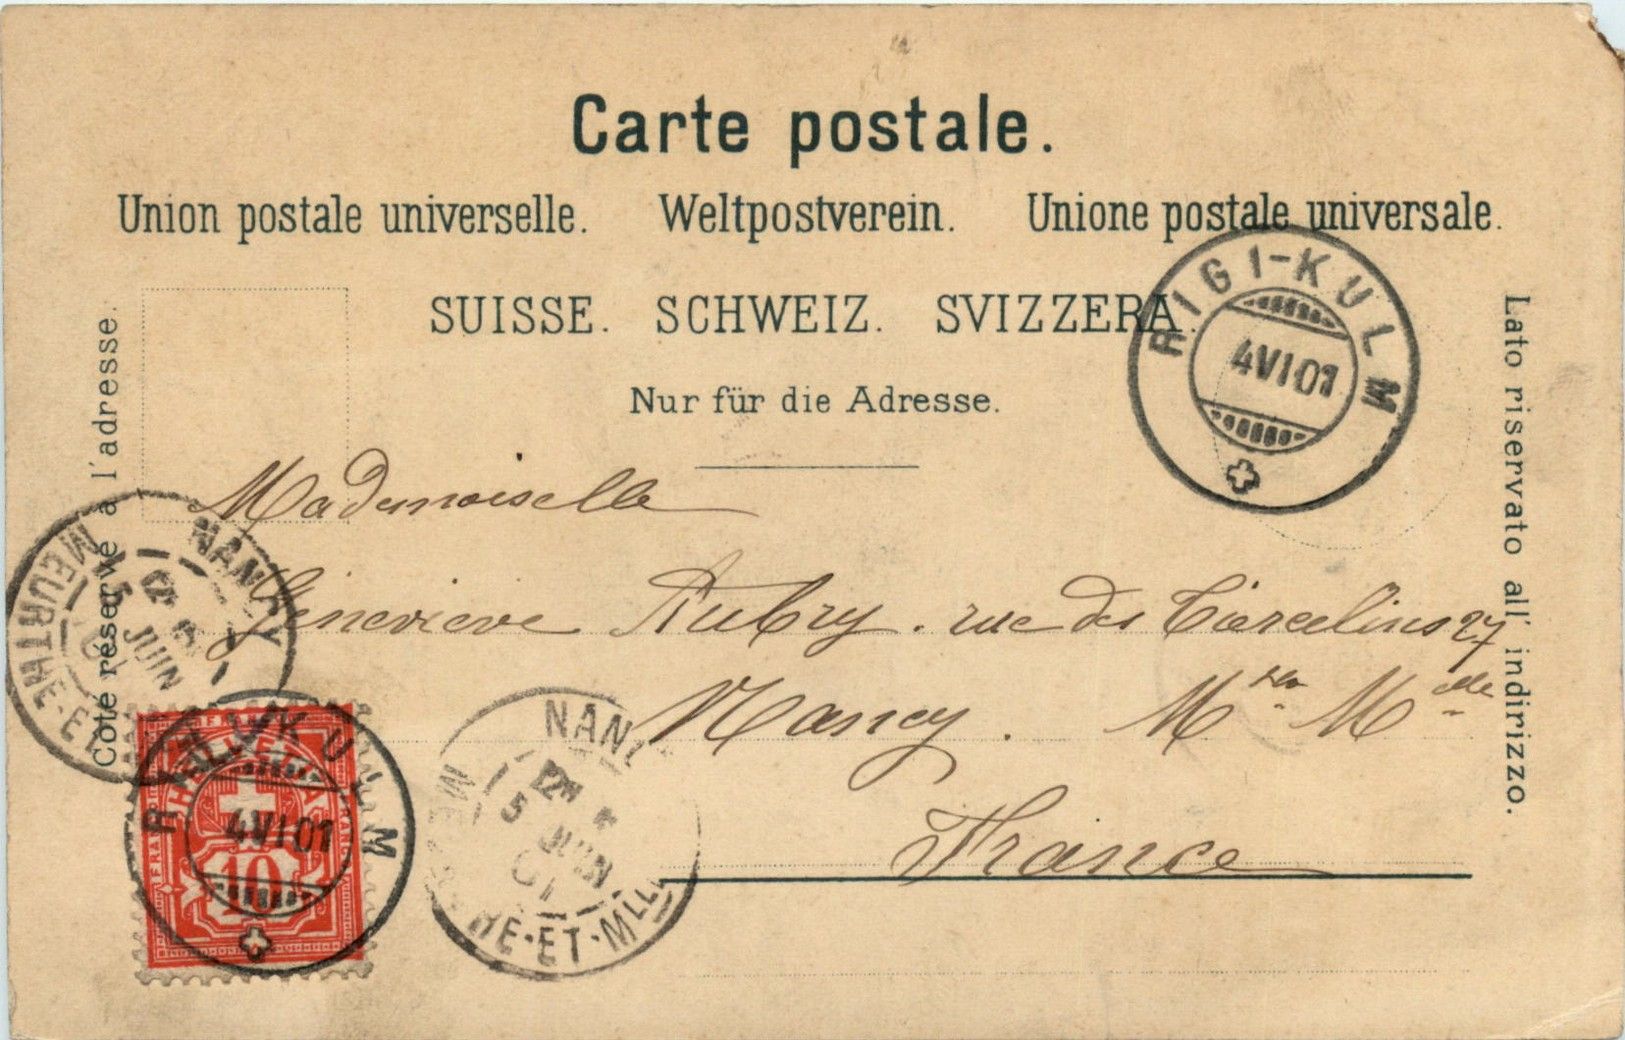 Carte postale.
Union postale universelle. Weltpostverein. Unione postale universale.
SUISSE. SCHWEIZ. SVIZZERA.
Nur für die Adresse.
Côté réservé à l'adresse.
Lato riservato all' indirizzo.
RIGI-KULM
4 VI 01
Mademoiselle
Geneviève Aubry. rue des Tiercelins 27
Nancy. Mthe Melle
France
NANCY
5 JUIN
MEURTHE-ET
FRANCO
HELVETIA
10
RIGI-KULM
4 VI 01
NANC
5 JUIN 01
RHE-ET-MLLE